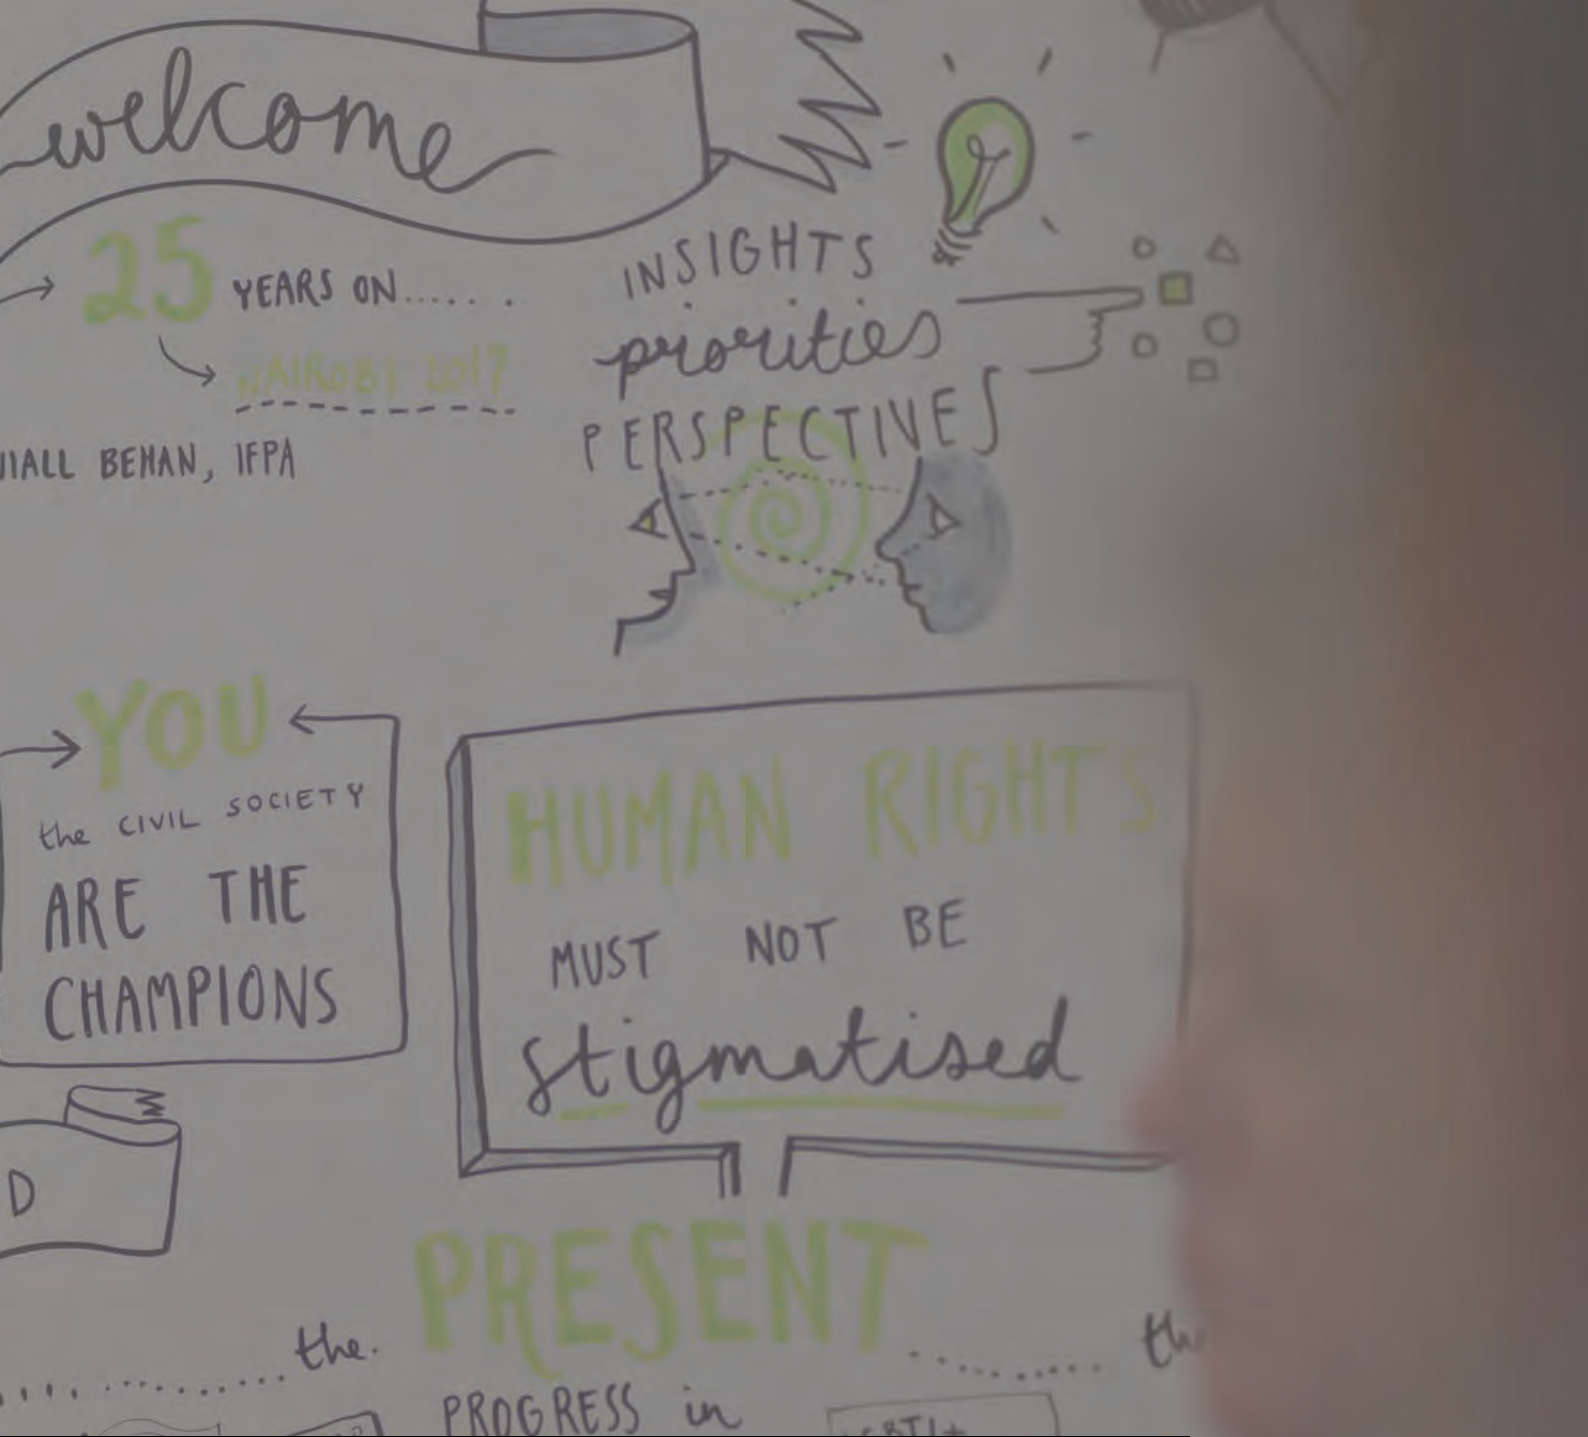 welcome
25 YEARS ON.......
NAIROBI 2017
BEHAN, IFPA
INSIGHTS
priorities
PERSPECTIVES
YOU
the CIVIL SOCIETY
ARE THE
CHAMPIONS
HUMAN RIGHTS
MUST NOT BE
stigmatised
D
the. PRESENT
PROGRESS in